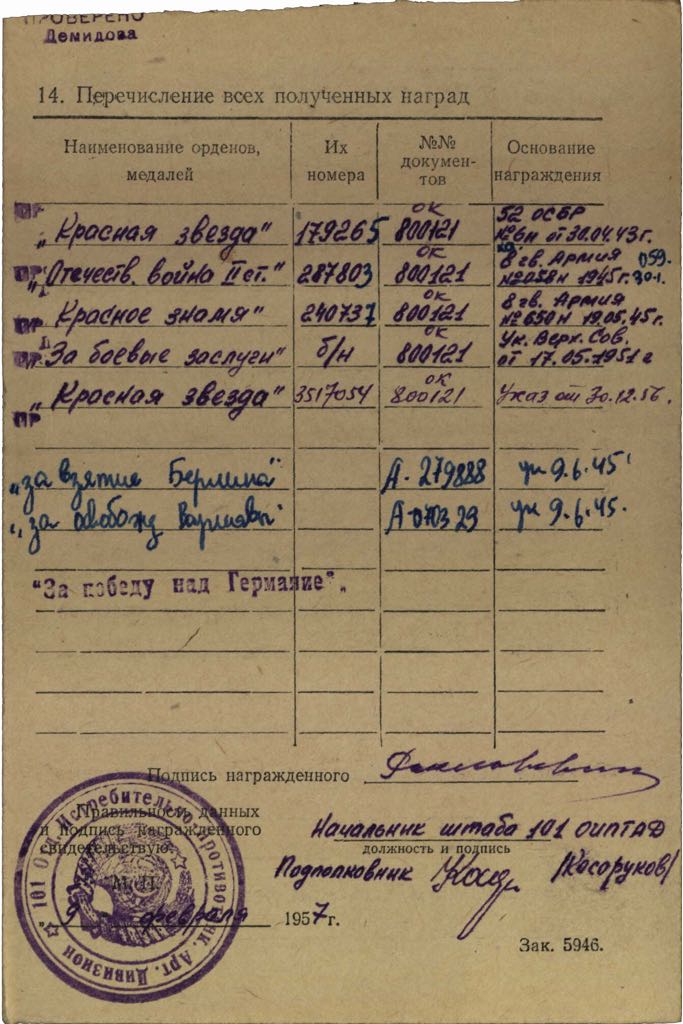 ПРОВЕРЕНО
Демидова
14. Перечисление всех полученных наград
Наименование орденов, медалей
Их номера
№№ документов
Основание награждения
ПР
„Красная звезда" 179265 ОК 800121 52 ОСБР №6н от 30.04.43г.
ПР „Отечеств. война II ст." 287803 ОК 800121 8 гв. Армия 059. №058н 1945г. 30.1.
ПР „Красное знамя" 240737 ОК 800121 8 гв. Армия №650н 19.05.45г.
ПР „За боевые заслуги" б/н ОК 800121 Ук. Верх. Сов. от 17.05.1951 г
„Красная звезда" 3517054 ОК 800121 Указ от 30.12.56.
ПР
„за взятие Берлина" А-279888 ук 9.6.45
„за освобожд Варшавы" А-070329 ук 9.6.45.
"За победу над Германие".
Подпись награжденного
Правильность данных
и подпись награжденного
свидетельствую.
Начальник штаба 101 ОИПТАД
должность и подпись
Подполковник /Косоруков/
М. П.
„9" февраля 1957г.
101 Отд. Истребительно Противотанк. Арт. Дивизион
Зак. 5946.